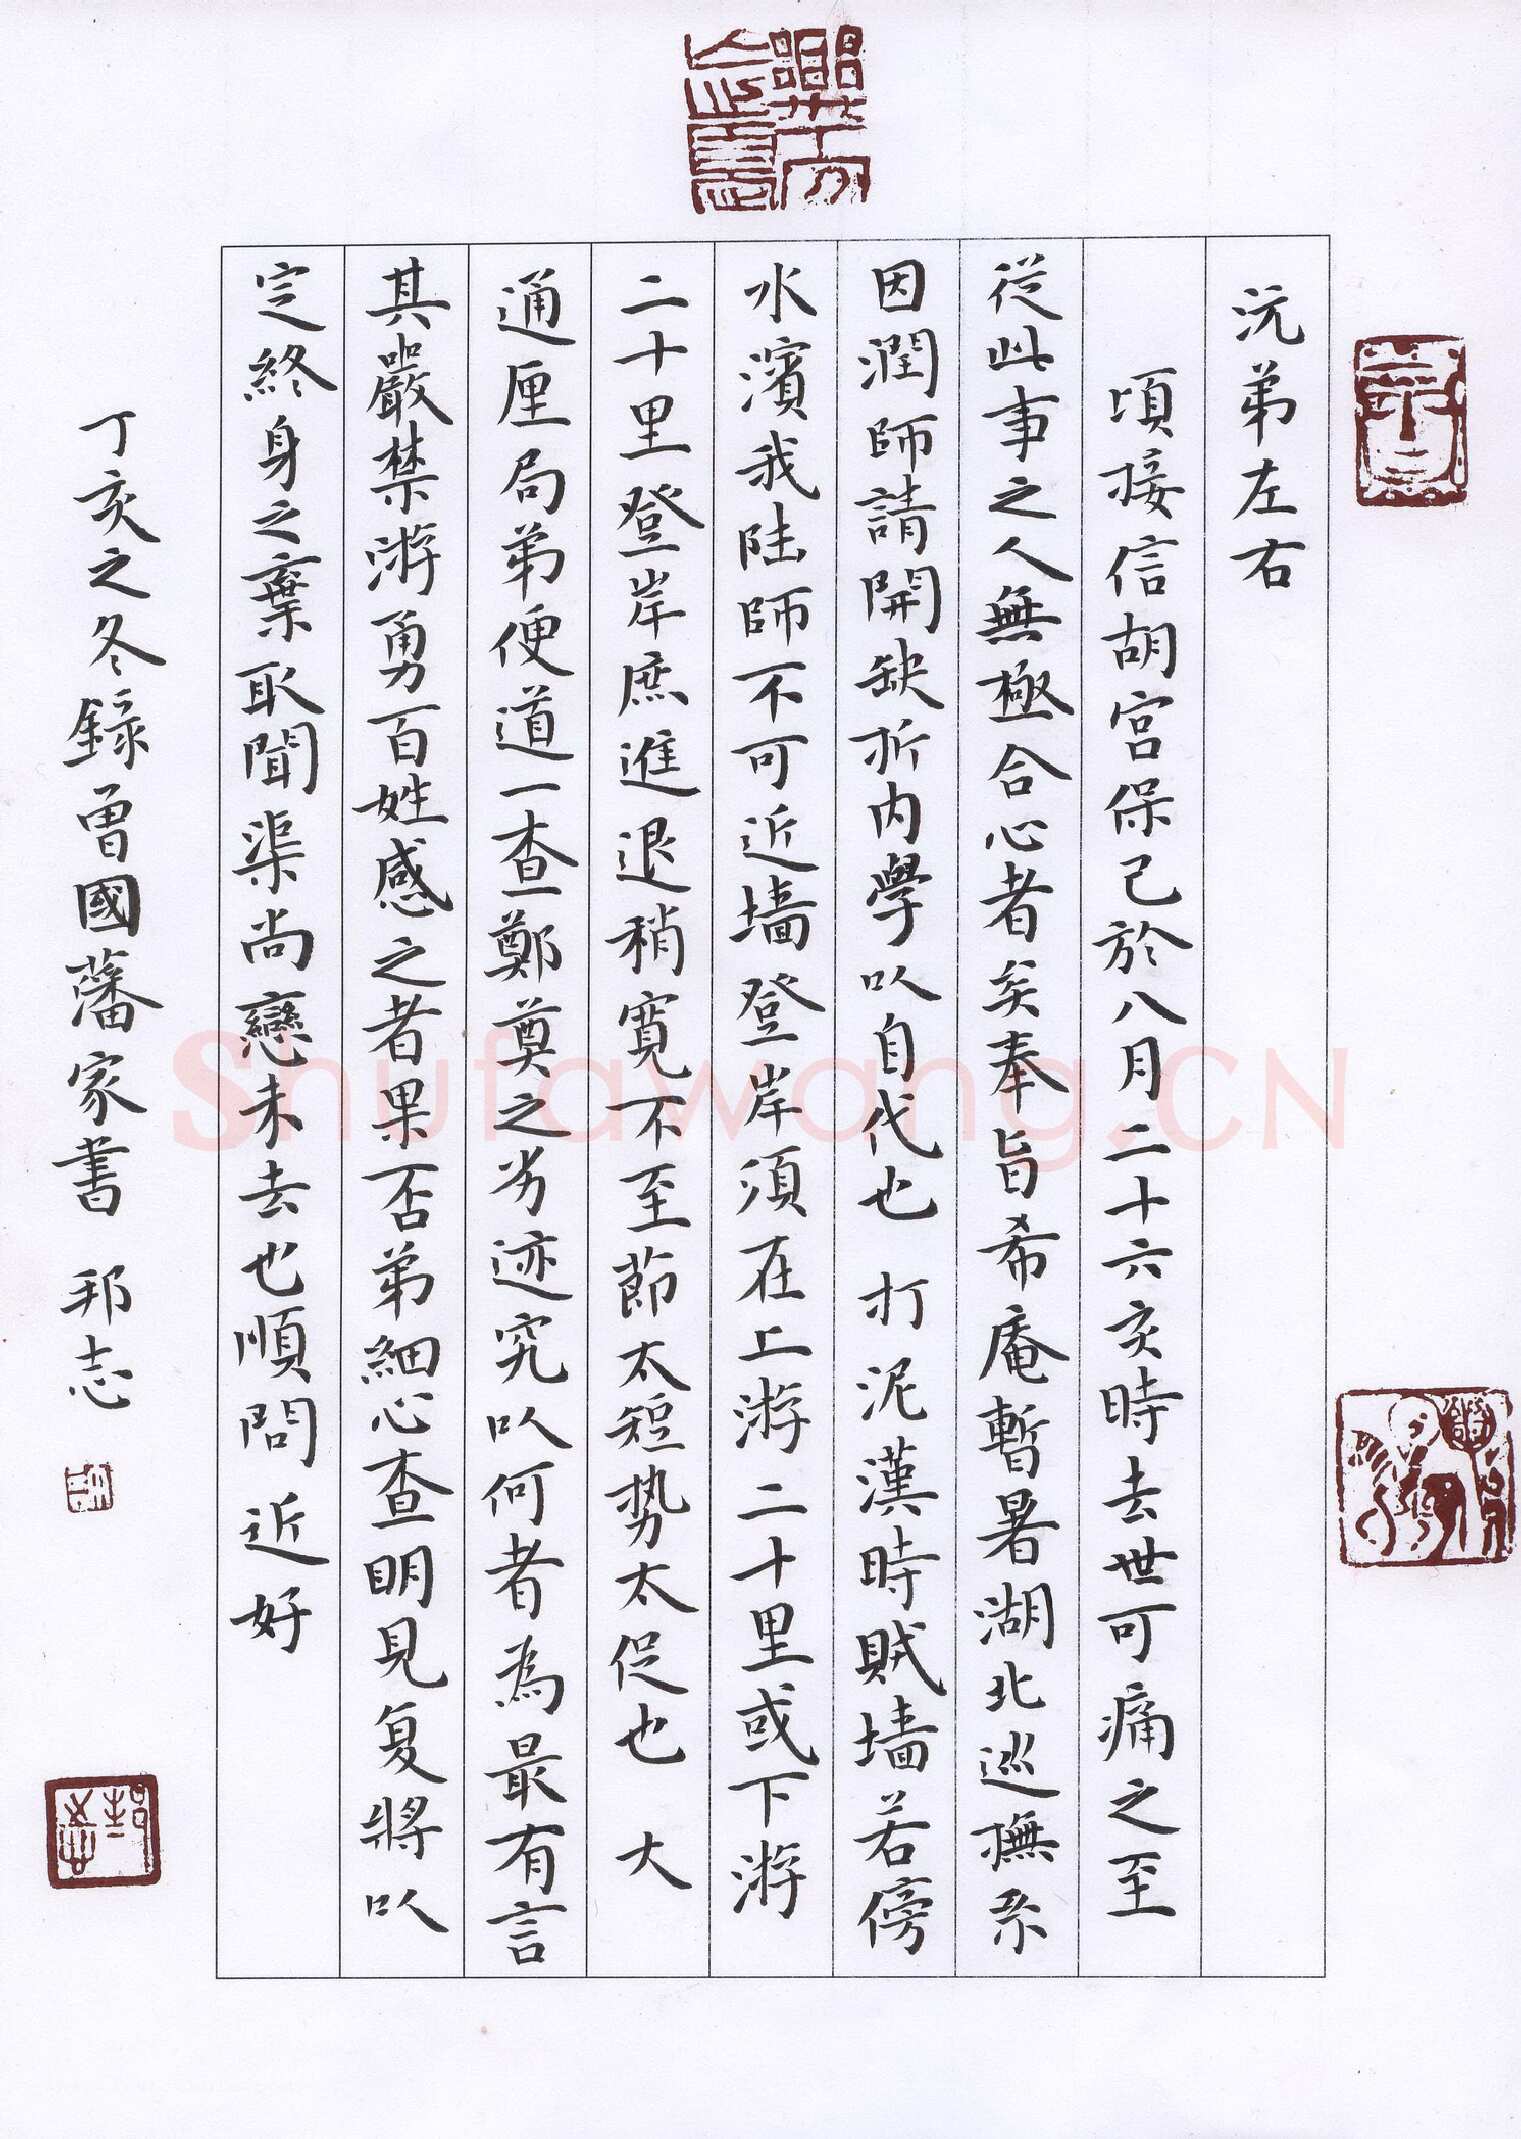 沅弟左右
頃接信胡宮保已於八月二十六亥時去世可痛之至
從此事之人無極合心者矣奉旨希庵暫署湖北巡撫系
因潤師請開缺折內學以自代也 打泥漢時賊墙若傍
水濱我陆師不可近墙登岸須在上游二十里或下游
二十里登岸庶進退稍寬不至節太短势太促也 大
通厘局弟便道一查鄭奠之劣迹究以何者為最有言
其嚴禁游勇百姓感之者果否弟細心查明見复將以
定終身之棄取聞渠尚戀未去也順問近好
丁亥之冬錄曾國藩家書 邦志
Shufawang.CN